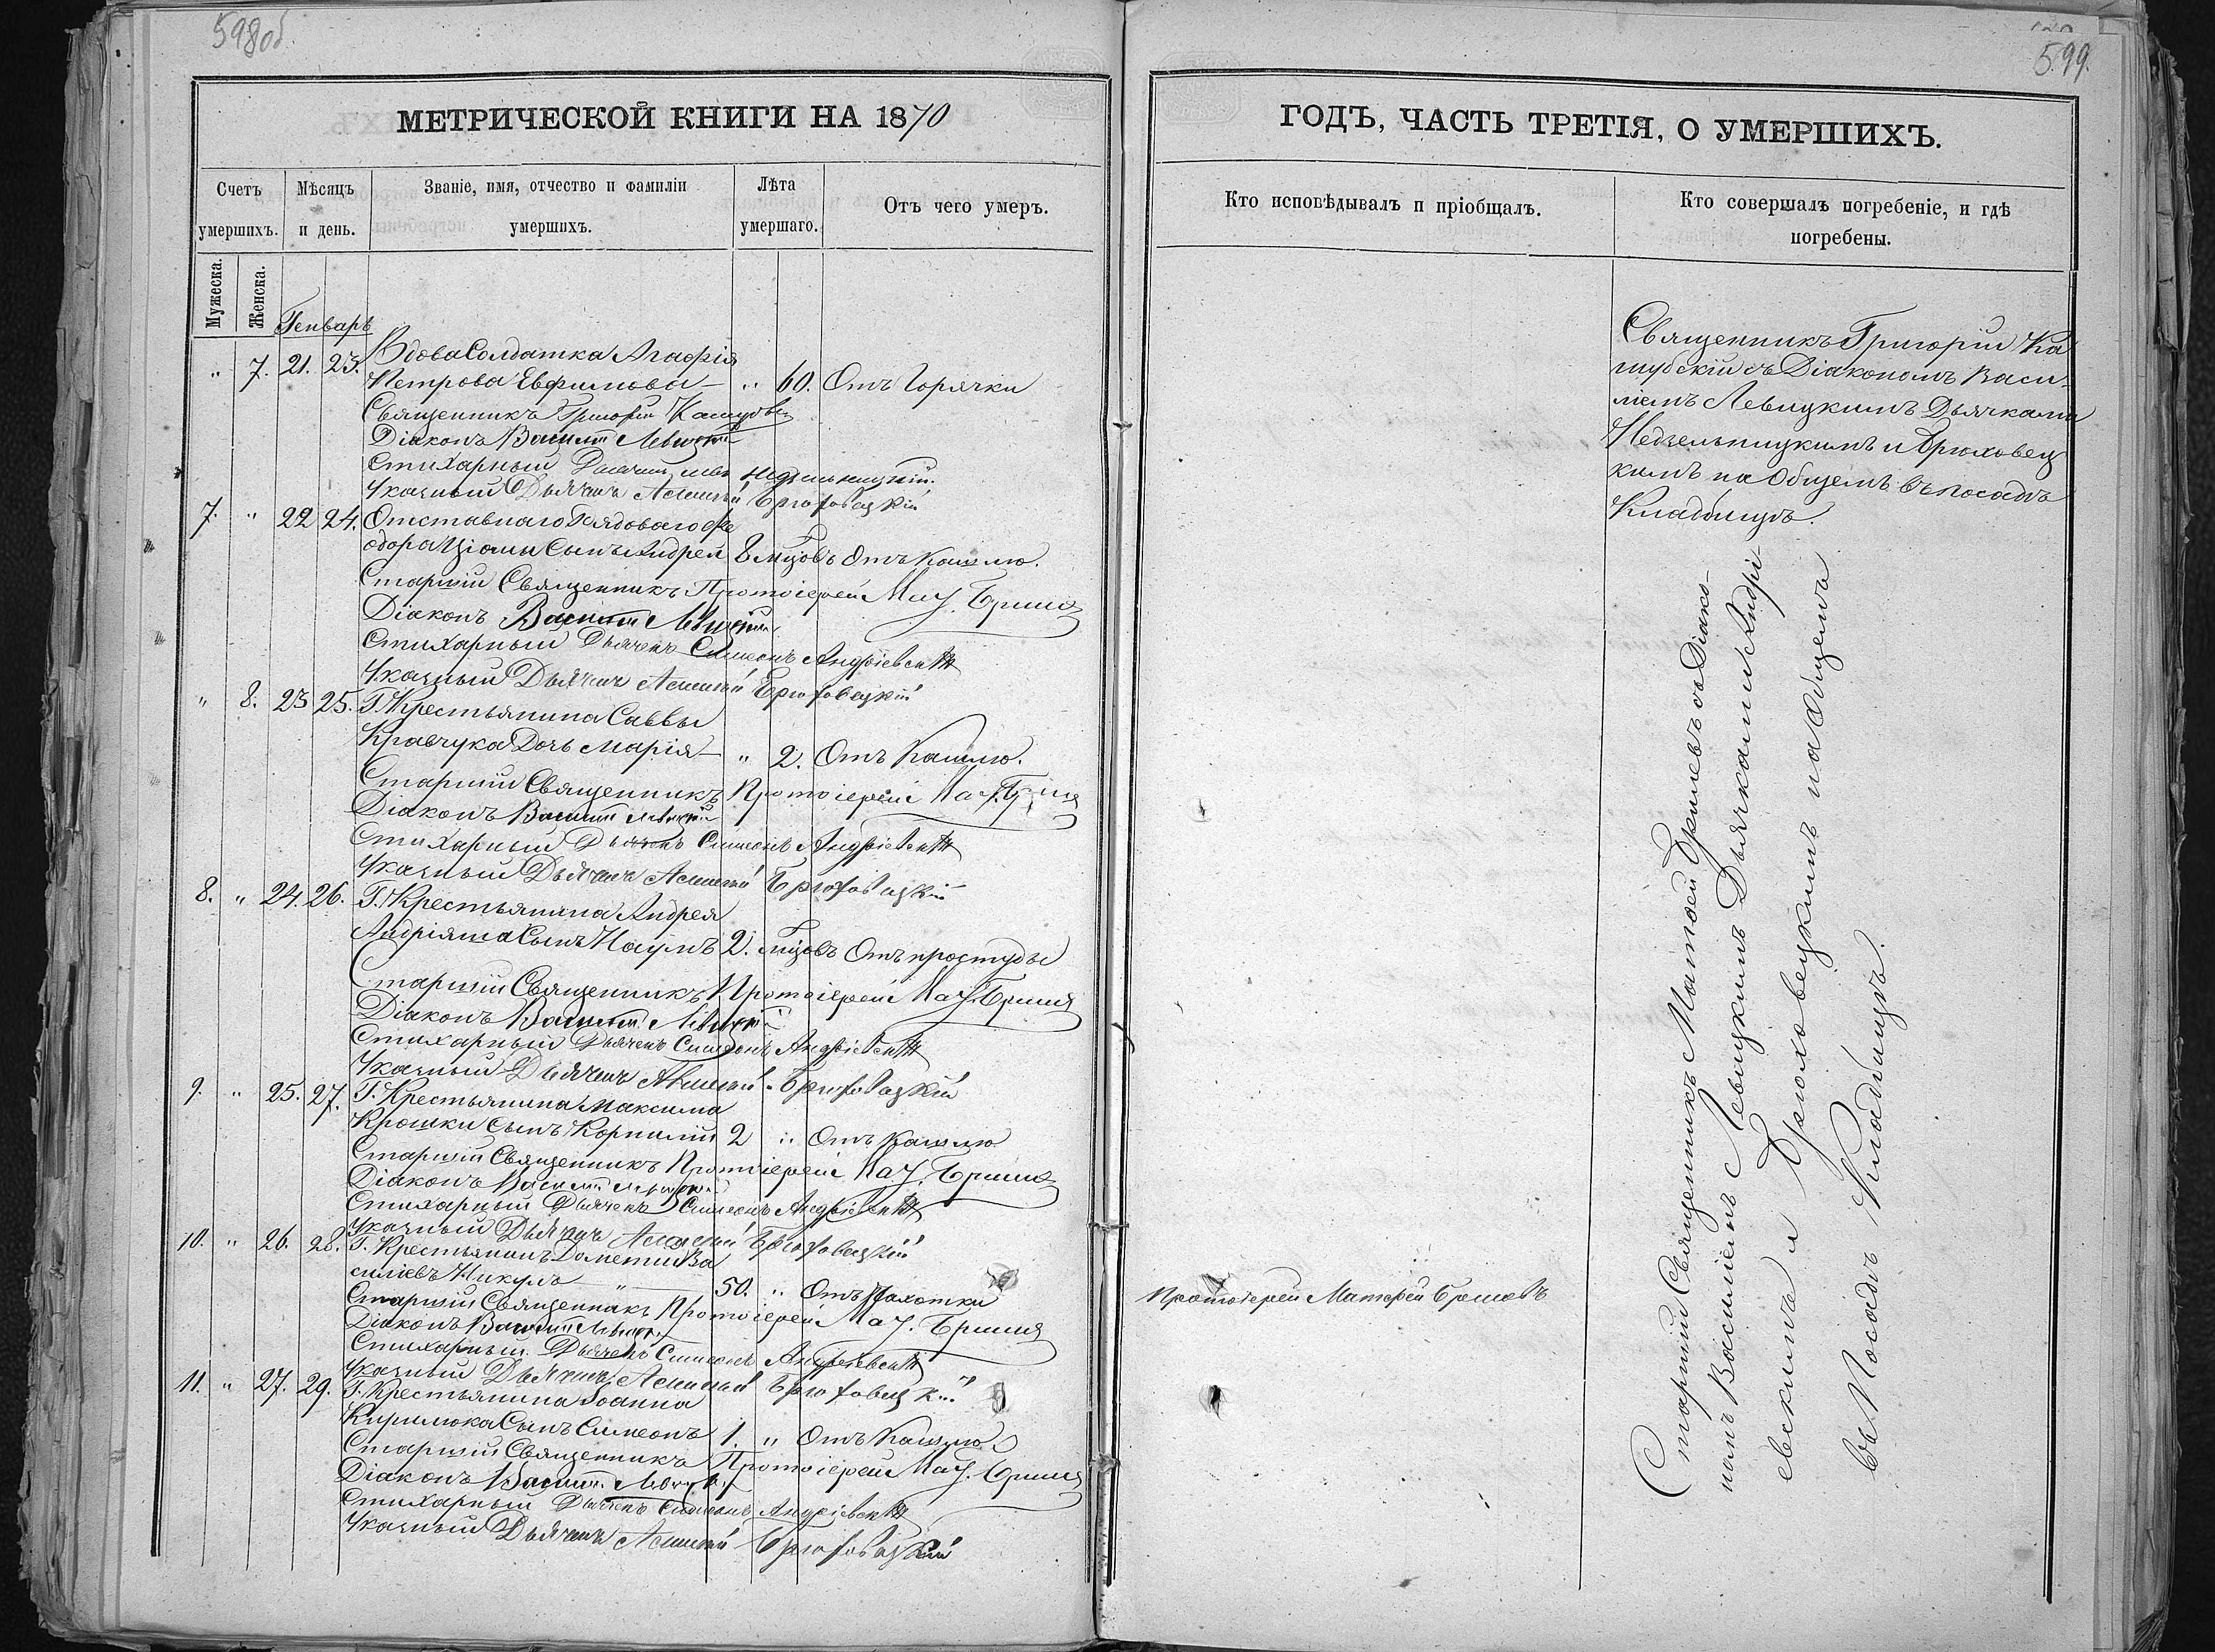 598об
МЕТРИЧЕСКОЙ КНИГИ НА 1870
Счетъ умершихъ.
Мѣсяцъ и день.
Званіе, имя, отчество и фамиліи умершихъ.
Лѣта умершаго.
Отъ чего умеръ.
Мужеска.
Женска.
Генварь
" 7. 21. 23. Вдова Солдатка Агафія
Петрова Евфимова — " 60. Отъ Горячки
Священникъ Григорій
Діаконъ Василій Левицкій
Стихарный Дьячекъ Недзельницкій.
Указный Дьячекъ Алексѣй Брюховецкій
7. " 22 24. Отставнаго Рядоваго Ѳе
одора сынъ Андрей 8 мцовъ Отъ Кашлю.
Старшій Священникъ Протоіерей Маѳ. Бриневъ
Діаконъ Василій Левицкій
Стихарный Дьячекъ Симеонъ Андріевскій
Указный Дьячекъ Алексѣй Брюховецкій
" 8. 23 25. Г. Крестьянина Саввы
Кравчука Дочь Марія — " 2. Отъ Кашлю.
Старшій Священникъ Протоіерей Маѳ. Бриневъ
Діаконъ Василій Левицкій
Стихарный Дьячекъ Симеонъ Андріевскій
Указный Дьячекъ Алексѣй Брюховецкій
8. " 24. 26. Г. Крестьянина Андрея
Андріяша Сынъ Наумъ 2. мцовъ Отъ простуды
Старшій Священникъ Протоіерей Маѳ. Бриневъ
Діаконъ Василій Левицкій
Стихарный Дьячекъ Симеонъ Андріевскій
Указный Дьячекъ Алексѣй Брюховецкій
9. " 25. 27. Г. Крестьянина Максима
Крошки Сынъ Корнилій 2 " Отъ Кашлю
Старшій Священникъ Протоіерей Маѳ. Бриневъ
Діаконъ Василій Левицкій
Стихарный Дьячекъ Симеонъ Андріевскій
Указный Дьячекъ Алексѣй Брюховецкій
10. " 26. 28. Г. Крестьянинъ Дометій Ва
силіевъ Никулъ " 50. " Отъ Чахотки
Старшій Священникъ Протоіерей Маѳ. Бриневъ
Діаконъ Василій Левицкій
Стихарный Дьячекъ Симеонъ Андріевскій
Указный Дьячекъ Алексѣй Брюховецкій
11. " 27. 29. Г. Крестьянина Іоанна
Кирилюка Сынъ Симеонъ 1. " Отъ Кашлю
Старшій Священникъ Протоіерей Маѳ. Бриневъ
Діаконъ Василій Левицкій
Стихарный Дьячекъ Симеонъ Андріевскій
Указный Дьячекъ Алексѣй Брюховецкій
599.
ГОДЪ, ЧАСТЬ ТРЕТІЯ, О УМЕРШИХЪ.
Кто исповѣдывалъ и пріобщалъ.
Кто совершалъ погребеніе, и гдѣ погребены.
Священникъ Григорій Ка
шубскій съ Діакономъ Васи-
ліемъ Левицкимъ Дьячками
Недзельницкимъ и Брюховец
кимъ на Общемъ въ посадѣ
Кладбищѣ.
Протоіерей Матѳей Бриневъ
Старшій Священникъ Матѳей Бриневъ съ Діако-
номъ Василіемъ Левицкимъ Дьячками Андрі-
евскимъ и Брюховецкимъ на Общемъ
въ Посадѣ Кладбищѣ.